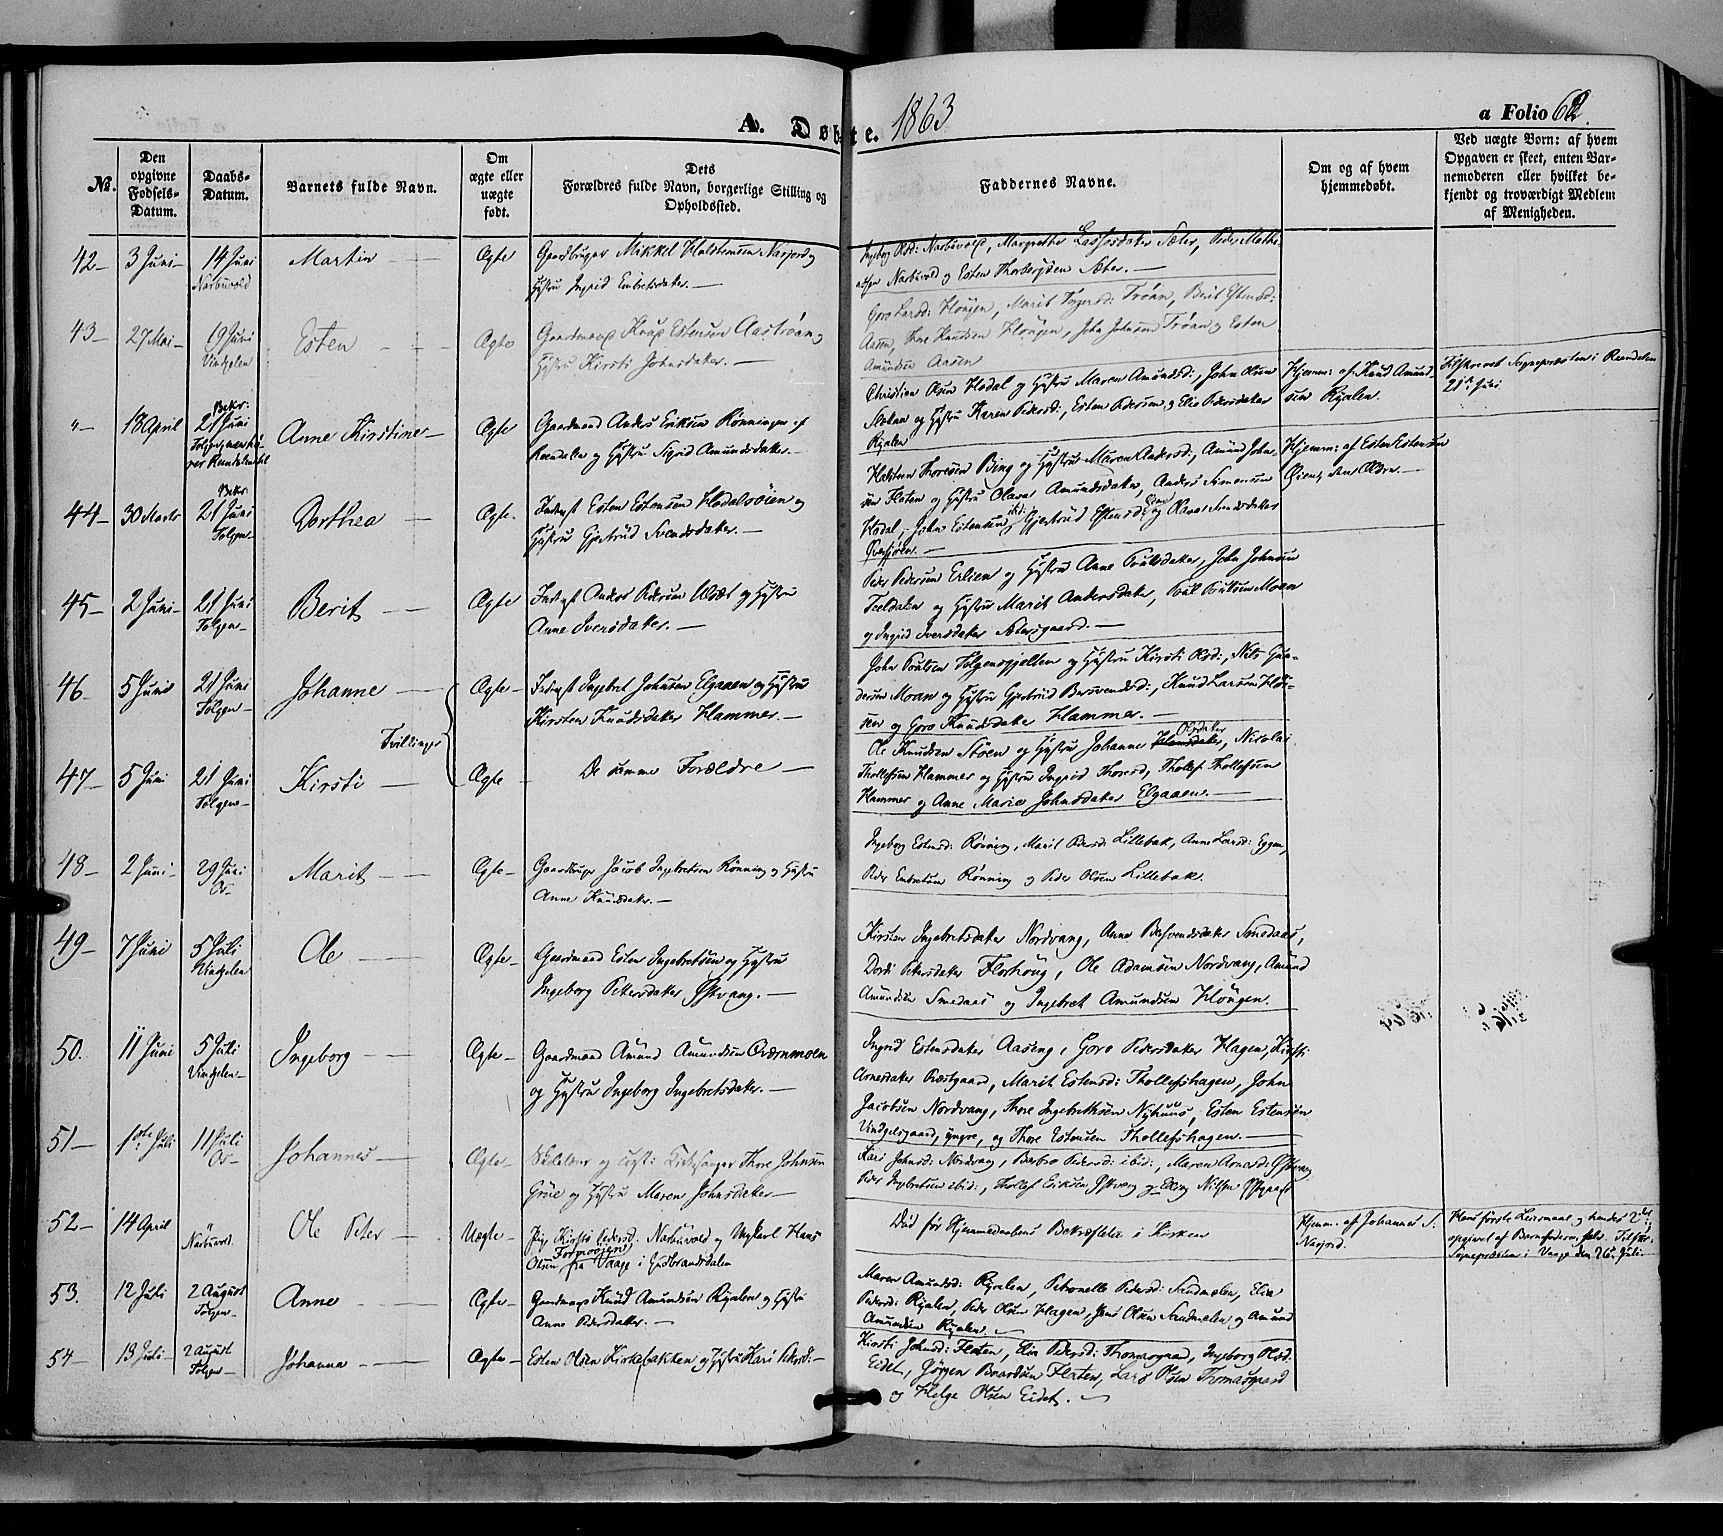 A. Døbte. 1863
a Folio 62.
No.
Den opgivne Fødsels-Datum.
Daabs-Datum.
Barnets fulde Navn.
Om ægte eller uægte født.
Dets Forældres fulde Navn, borgerlige Stilling og Opholdssted.
Faddernes Navne.
Om og af hvem hjemmedøbt.
Ved uægte Børn: af hvem Opgaven er skeet, enten Barnemoderen eller hvilket bekjendt og troværdigt Medlem af Menigheden.
42 – 3 Juni – 14 Juni Narbuvold
Martin
Ægte
Gaardbruger Mikkel Halstensen Nasjord og
Hustru Ingrid Embretsdatter. –
Ingeborg Olsd: Narbuvold, Margrethe Lassesdatter Sæter, Peder
Narbuvold og Esten Thorbergsen Sæter. –
43 – 27 Mai – 19 Juni Vingelen
Esten
Ægte
Gaardmand Knud Estensen Aastrøen og
Hustru Kirsti Johnsdatter. –
Goro Larsd: Hougen, Marit Ingersd: Trøan, Berit Estensd:
Aasen, Thore Knudsen Hougen, John Johnsen Trøan og Esten
Amundsen Aasen
"– 18 April Bekr: 21 Juni Tolgen
Anne Kirstine –
Ægte
Gaardmand Anders Eriksen Rønningen af
Rendalen og Hustru Sigrid Amundsdatter. –
Christian Olsen Hodal og Hustru Maren Amundsd:, John Olsen
og Hustru Karen Pedersd:, Esten Pedersen og Elie Pedersdatter
Ryalen
Hjemm: af Knud Amundsen Ryalen.
Tilskrevet Sognepræsten i Rendalen
21de Juni
44 – 30 Marts Bekr. 21 Juni Tolgen –
Dorthea
Ægte.
Inderst Esten Estensen Hodalsøien og
Hustru Gjertrud Svendsdatter. –
Halsten Thoresen Bing og Hustru Maren Andersd:, Amund Johnsen
Floten og Hustru Olava Amundsdatter, Anders Simensen
Hodal, John Estensen ibid:, Gjertrud Estensd: og Olava Svendsdatter
Hjemm: af Esten Estensen
Øien, den Ældre. –
45 – 2 Juni – 21 Juni Tolgen –
Berit
Ægte
Inderst Anders Pedersen Ulset og Hustru
Anne Iversdatter. –
Peder Pedersen Erlien og Hustru Anne Poulsdatter, John Johnsen
Teeldalen og Hustru Marit Andersdatter, Poul Poulsen Moen
og Ingrid Iversdatter Sætersgaard. –
46 – 5 Juni 21 Juni Tolgen –
Johanne
Tvillinger
Ægte –
Inderst Ingebret Johnsen Elgaaen og Hustru
Kirsten Knudsdatter Hammer. –
John Poulsen Holgensgjelten og Hustru Kirsti Olsd:, Nils
Moan og Hustru Gjertrud Bersvendsd:, Knud Larsen
og Goro Knudsdatter Hammer. –
47 – 5 Juni 21 Juni Tolgen –
Kirsti
Ægte –
De samme Forældre –
Ole Knudsen Støen og Hustru Johanne Olsdatter, Nicolai
Thollefsen Hammer og Hustru Ingrid Thoresd, Thollef Thollefsen
Hammer og Anne Marie Johnsdatter Elgaaen. –
48 – 2 Juni – 29 Juni Os –
Marit
Ægte –
Gaardbruger Jacob Ingebretsen Rønning og Hustru
Anne Knudsdatter. –
Ingeborg Estensd: Rønning, Marit Pedersd: Lillebak, Anne Larsd: Eggen,
Peder Embretsen Rønning og Peder Olsen Lillebak.
49 – 7 Juni 5 Juli Vingelen
Ole
Ægte –
Gaardmand Esten Ingebretsen og Hustru
Ingeborg Pedersdatter Østvang. –
Kirsten Ingebretsdatter Nordvang, Anne Bersvendsdatter Smedaas,
Dordi Pedersdatter Florhoug, Ole Adamsen Nordvang, Amund
Amundsen Smedaas og Ingebret Amundsen Hougen.
50. 11 Juni 5 Juli Vingelen –
Ingeborg
Ægte –
Gaardmand Amund Amundsen Qværnmoen
og Hustru Ingeborg Ingebretsdatter. –
Ingrid Estensdatter Aaseng, Goro Pedersdatter Hagen, Kirsti
Arnesdatter Præstgaard, Marit Estensd: Thollefshagen, John
Jacobsen Nordvang, Thore Ingebrethsen Nyhuus, Esten Estensen
Vingelsgaard, yngre, og Thore Estensen Thollefshagen. –
51 – 1ste Juli 11 Juli Os –
Johannes –
Ægte –
Skolelærer og const: Kirkesanger Thore Johnsen
Grue og Hustru Maren Johnsdatter –
Kari Johnsd: Nordvang, Berbro Pedersd: ibid:, Maren Arnesd: Østvang
Peder Ingebretsen ibid:, Thollef Eriksen Østvang og Elling Nilsen
52 – 14 April " Narbuvold.
Ole Peter –
Uægte –
Pige Kirsti Pedersd. Narbuvold og Ungkarl Hans
Olsen Formoeie fra Vaage i Gudbrandsdalen
Død før Hjemmedaabens Bekræftelse i Kirken
Hjemm. af Johannes S.
Nasjord.
Hans første Leiermaal og hendes 2det,
opgivet af Barnefaderen selv. Tilskr.
Sognepræsten i Vaage den 26de Juli.
53. 12 Juli 2 August Tolgen –
Anne
Ægte –
Gaardmand Knud Amundsen Ryalen og Hustru
Anne Pedersdatter. –
Maren Amundsd: Ryalen, Petronelle Pedersd: Sandmælen, Elie
Pedersd: Ryalen, Peder Olsen Hagen, Jens Olsen Sandmælen og Amund
Amundsen Ryalen. –
54 – 13 Juli – 2 August Tolgen –
Johanna
Ægte –
Esten Olsen Kirkebakken og Hustru Kari Pedersd: –
Kirsti Johnsd: Floten, Elie Pedersd: Thomasgaard, Ingeborg Olsd.
Eidet, Jørgen Baardsen Floten, Lars Olsen Thomasgaard
og Helge Olsen Eidet. –